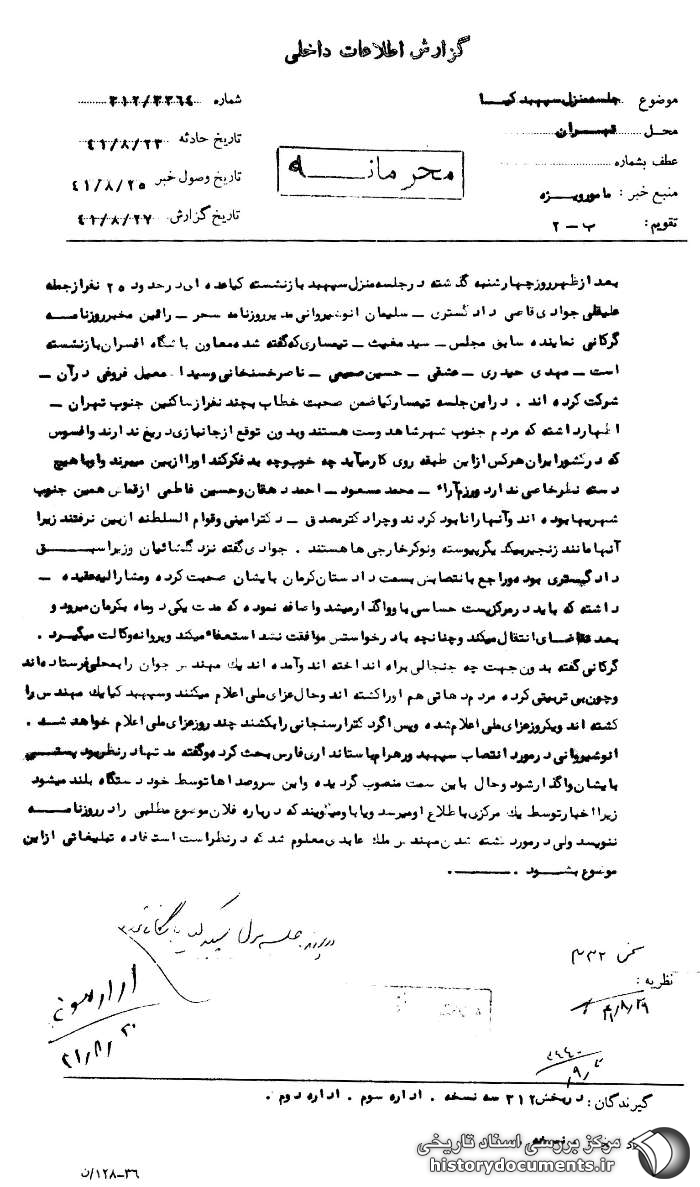 گزارش اطلاعات داخلی
موضوع جلسه منزل سپهبد کیا
شماره ۳۱۲/۳۳۶۴
محل تهران
تاریخ حادثه ۴۱/۸/۲۳
محرمانه
عطف بشماره
تاریخ وصول خبر ۴۱/۸/۲۵
منبع خبر: مامور ویژه
تاریخ گزارش ۴۱/۸/۲۷
تقویم: ب – ۲
بعد از ظهر روز چهارشنبه گذشته در جلسه منزل سپهبد بازنشسته کیا عده ای در حدود ۲۵ نفر از جمله
علیقلی جوادی قاضی دادگستری – سلیمان انوشیروانی مدیر روزنامه سحر – راقین مخبر روزنامه
گرکانی نماینده سابق مجلس – سید مغیث – تیمساری که گفته شده معاون باشگاه افسران بازنشسته
است – مهدی حیدری – عشقی – حسین صحیحی – ناصر حسنخانی و سید اسمعیل فروغی در آن –
شرکت کرده اند . در این جلسه تیمسار کیا ضمن صحبت خطاب به چند نفر از ساکنین جنوب تهران –
اظهار داشته که مردم جنوب شهر شاهدوست هستند و بدون توقع از جانبازی دریغ ندارند و افسوس
که در کشور ایران هر کس از این طبقه روی کار میآید چه خوب و چه بد فکر کند او را از بین میبرند و یا با هیچ
دسته نظر خاصی ندارد رزم آراء – محمد مسعود – احمد دهقان و حسین فاطمی از قماش همین جنوب
شهریها بوده اند و آنها را نابود کردند و چرا دکتر مصدق – دکتر امینی و قوام السلطنه از بین نرفتند زیرا
آنها مانند زنجیر بیکدیگر پیوسته و نوکر خارجی ها هستند . جوادی گفته نزد گلشائیان وزیر اسبق
دادگستری بوده و راجع بانتصابش بسمت دادستان کرمان بایشان صحبت کرده و مشارالیه عقیده –
داشته که باید در مرکز پست حساسی باو واگذار میشد و اضافه نموده که مدت یکی دو ماه بکرمان میرود و
بعد تقاضای انتقال میکند و چنانچه با درخواستش موافقت نشد استعفاء میکند و پروانه وکالت میگیرد .
گرکانی گفته بدون جهت چه جنجالی براه انداخته اند و آمده اند یک مهندس جوان را به محلی فرستاده اند
و چون بی تربیتی کرده مردم دهاتی هم او را کشته اند و حال عزای ملی اعلام میکنند و سپهبد کیا یک مهندس را
کشته اند و یکروز عزای ملی اعلام شده و پس اگر دکتر ارسنجانی را بکشند چند روز عزای ملی اعلام خواهد شد .
انوشیروانی در مورد انتصاب سپهبد ورهرام باستانداری فارس بحث کرده و گفته مدتها در نظر بود پستی
بایشان واگذار شود و حال باین سمت منصوب گردیده و این سر و صداها توسط خود دستگاه بلند میشود
زیرا اخبار توسط یک مرکزی باطلاع او میرسد و یا باو میگویند که درباره فلان موضوع مطلبی را در روزنامه
ننویسد ولی در مورد کشته شدن مهندس ملک عابدی معلوم شد که در نظر است استفاده تبلیغاتی از این
موضوع بشود .
در پرونده جلسه منزل سپهبد کیا بایگانی شود
بخش ۳۳۲
نظریه :
۴۱/۸/۲۹
۴۱/۸/۳۰
۹/۳
گیرندگان: در بخش ۳۱۲ سه نسخه . اداره سوم . اداره دوم .
مرکز بررسی اسناد تاریخی
historydocuments.ir
۱۲۸–۳۶/ن